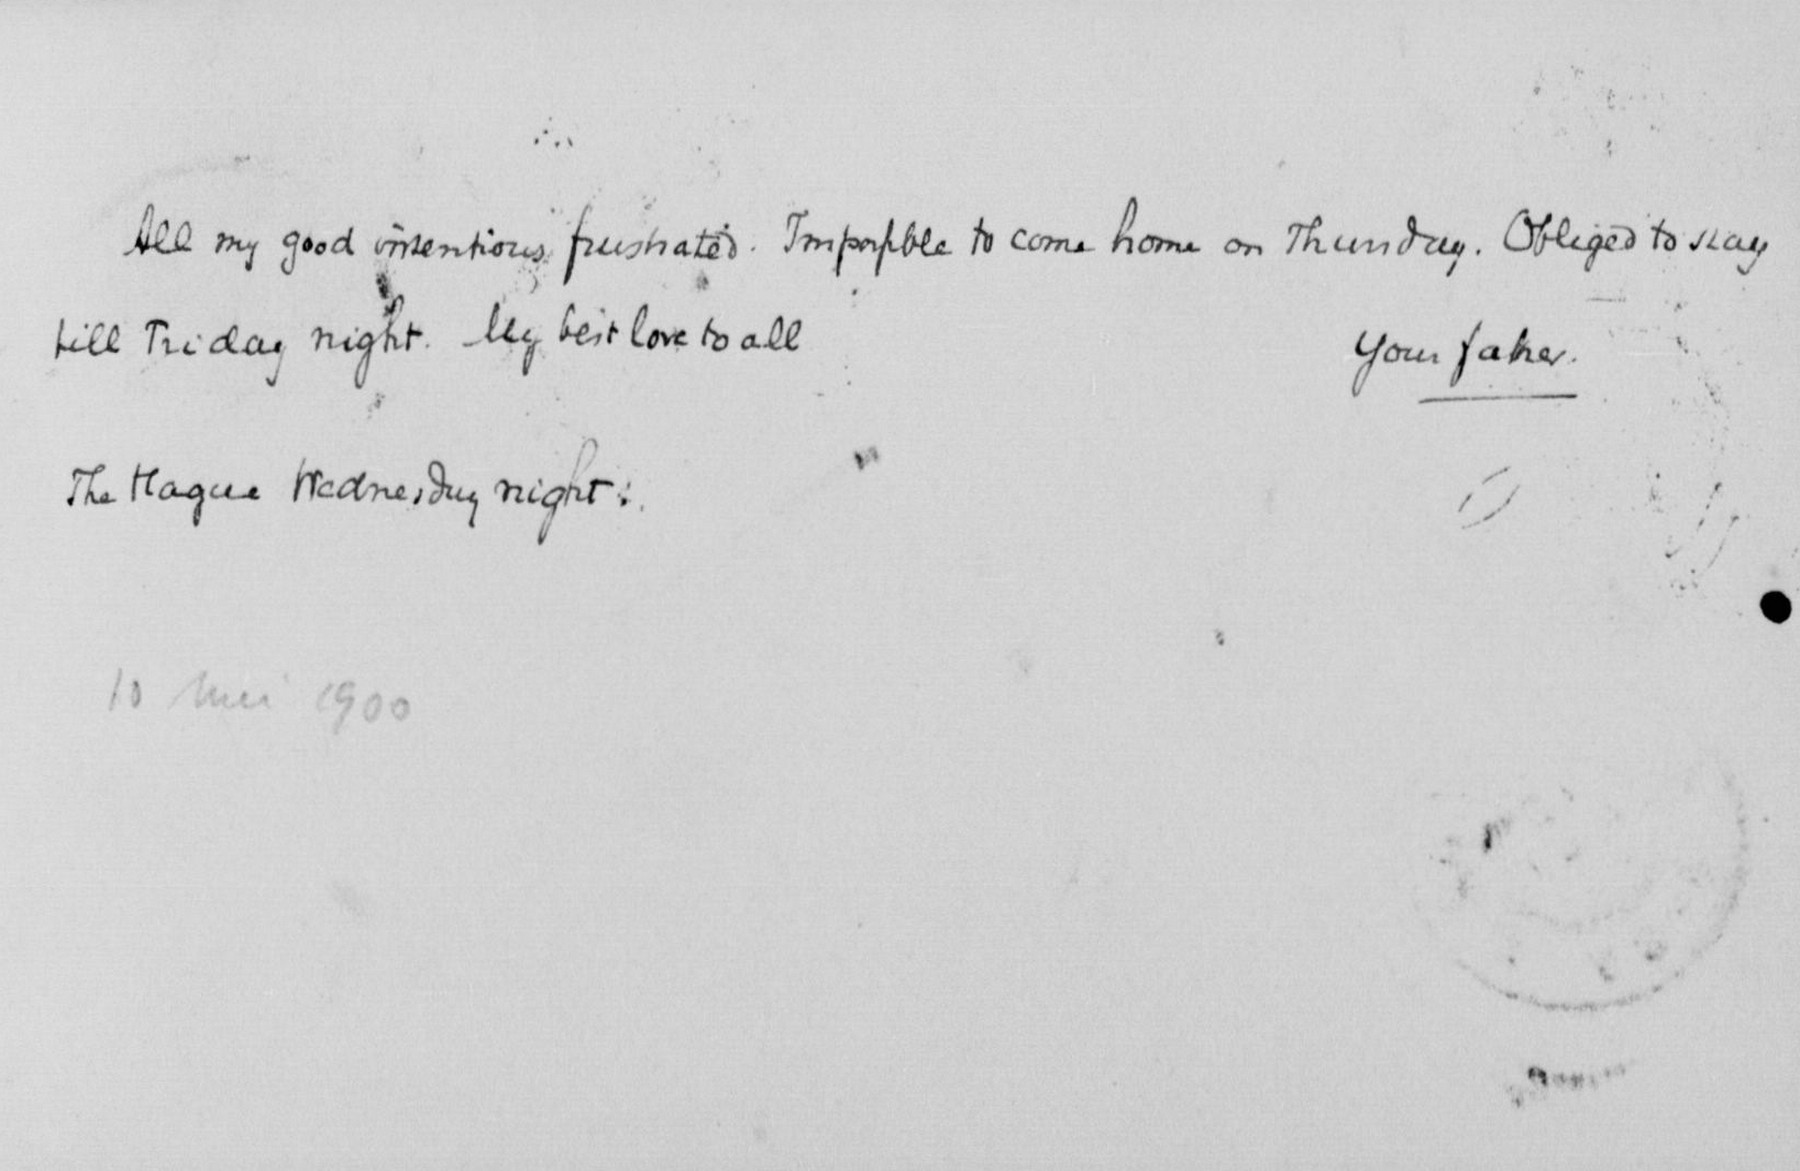 All my good intentions frustrated. Impossible to come home on Thursday. Obliged to stay
till Friday night. My best love to all
Your father.
The Hague Wednesday night.
10 Mei 1900